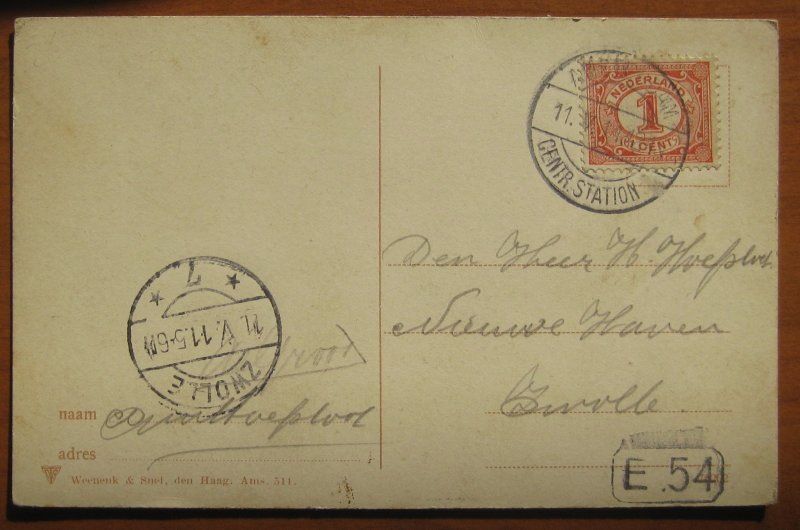 NEDERLAND
1
CENT
11.
CENTR. STATION
Den Heer H. Hoefsloot
Nieuwe Haven
Zwolle.
7
11.V.11.5-6N
ZWOLLE
naam
adres
Weenenk & Snel, den Haag. Ams. 511.
E.54